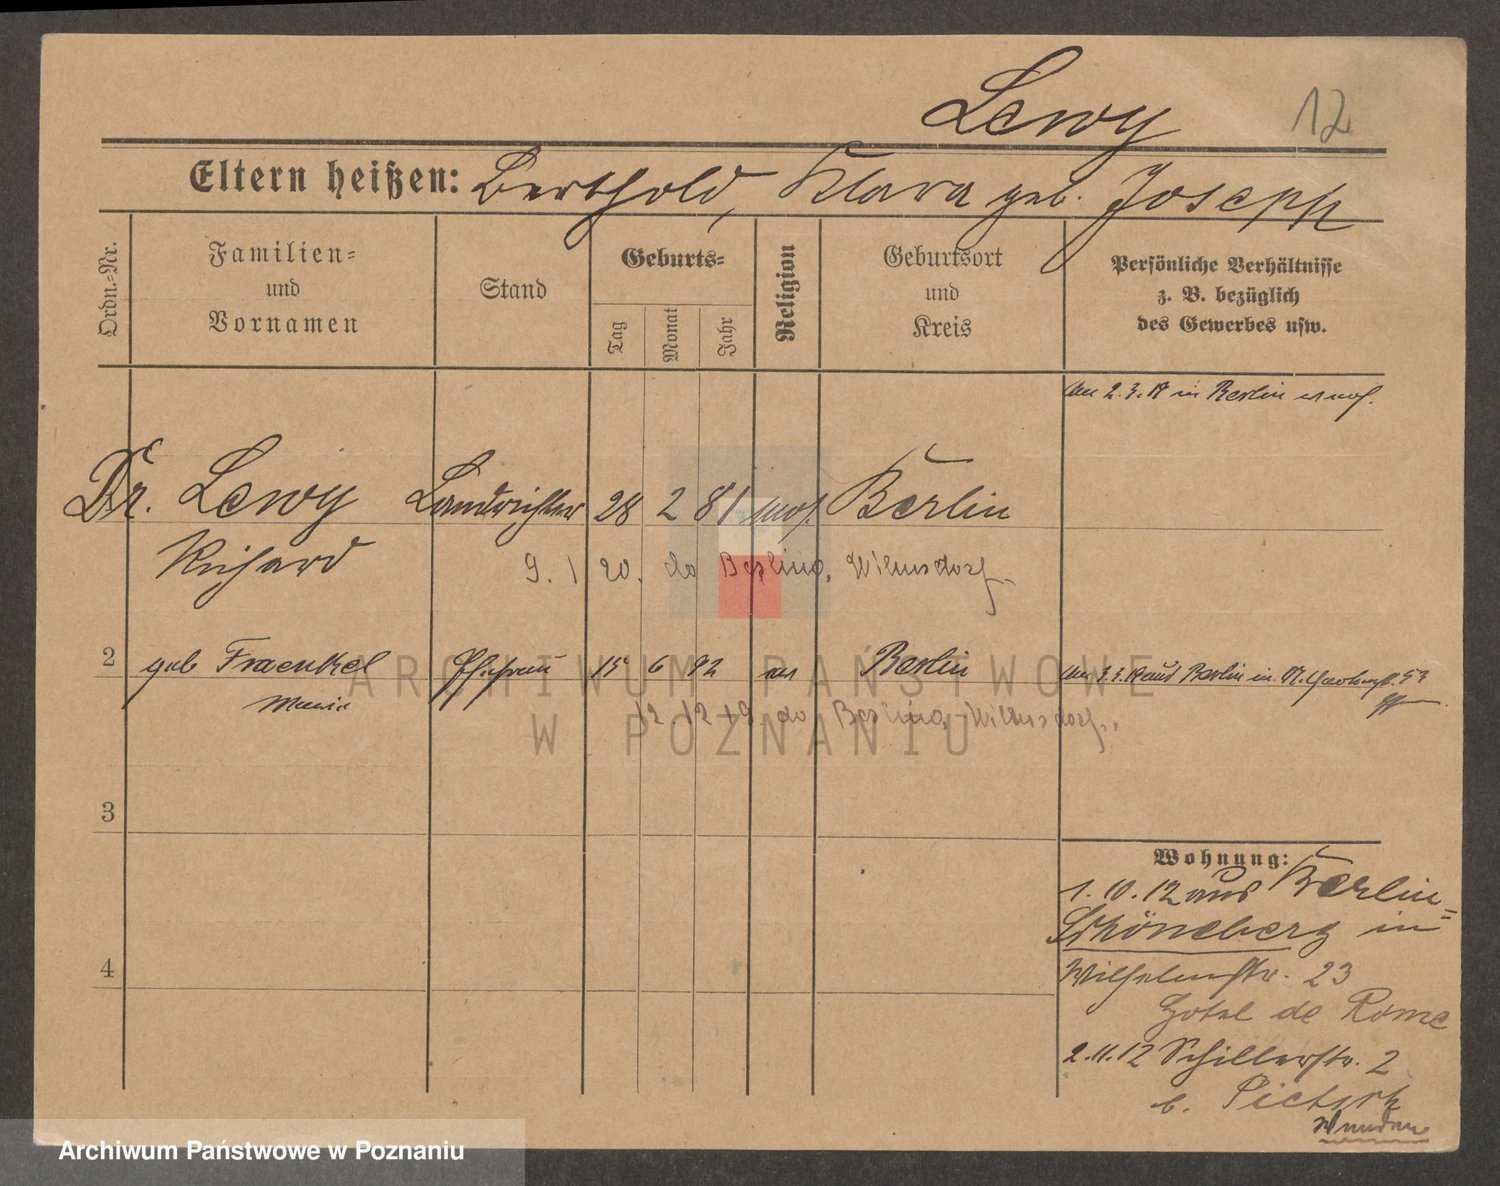 Lewy 12
Eltern heißen: Berthold, Klara geb. Joseph
Ordn.-Nr.
Familien-
und
Vornamen
Stand
Geburts-
Tag
Monat
Jahr
Religion
Geburtsort
und
Kreis
Persönliche Verhältnisse
z. B. bezüglich
des Gewerbes usw.
Am 2.3.18 in Berlin
Dr. Lewy Landrichter 28 2 81 mos. Berlin
Richard
9. 1 20. do Wilmsdorf.
2 geb Fraenkel Ehefrau 15 6 92 Berlin
12 12 19 do Wilmsdorf.
aus Berlin in
3
4
Wohnung:
1.10.12 aus Berlin-
Schöneberg in
Wilhelmstr. 23
Hotel de Rome
2.11.12 Schillerstr. 2
b.
ARCHIWUM PAŃSTWOWE
W POZNANIU
Archiwum Państwowe w Poznaniu